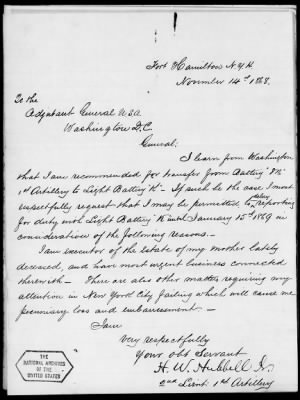 Fort Hamilton N.Y.H.
November 14th 1868.
To the
Adjutant General U.S.A
Washington D.C.
General:
I learn from Washington
that I am recommended for transfer from Battery
1st Artillery to Light Battery "K" – If such be the case I most
respectfully request that I may be permitted to delay reporting
for duty with Light Battery "K" until January 15th 1869 in
consideration of the following reasons. –
I am executor of the Estate of my mother lately
deceased, and have most urgent business connected
therewith – There are also other matters requiring my
attention in New York City failing which will cause me
pecuniary loss and embarrassment. –
I am
Very respectfully
Your obt Servant
H. W. Hubbell Jr.
2nd Lieut: 1st Artillery
THE
NATIONAL ARCHIVES
OF THE
UNITED STATES